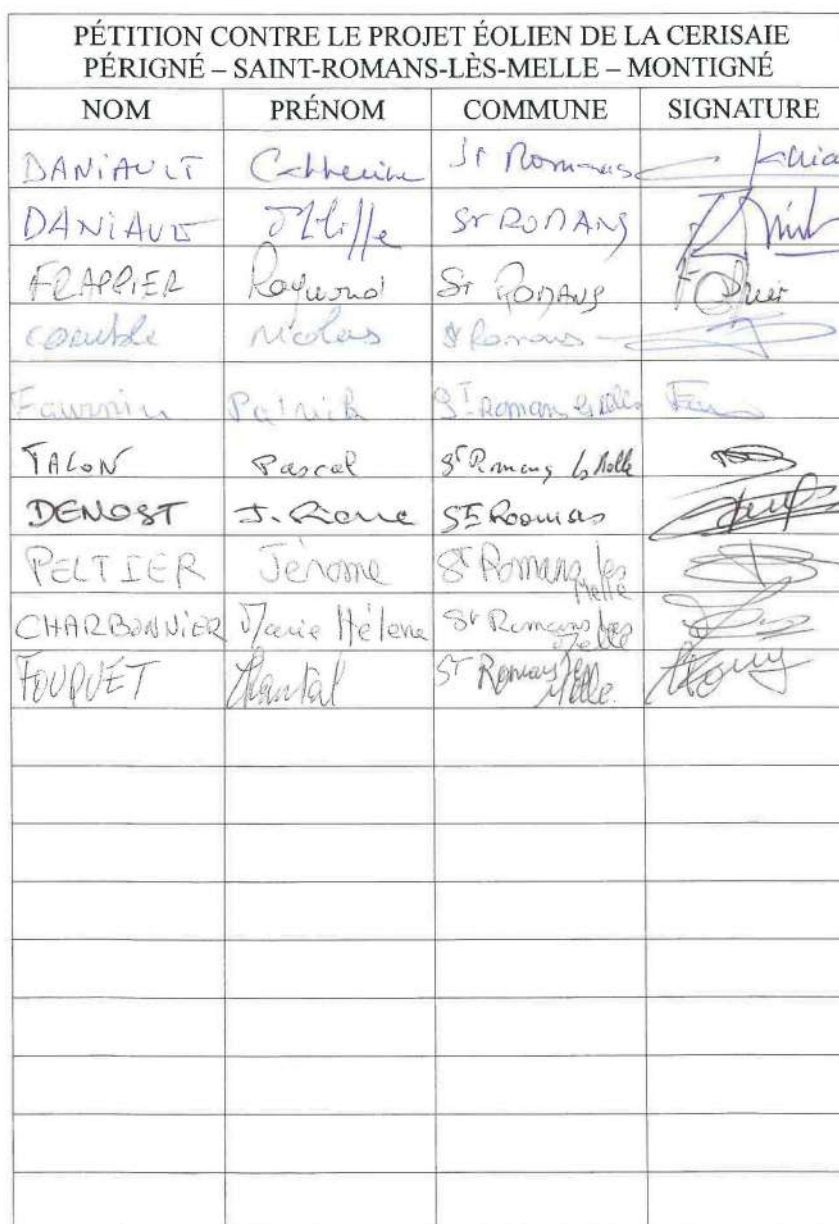 PÉTITION CONTRE LE PROJET ÉOLIEN DE LA CERISAIE
PÉRIGNÉ – SAINT-ROMANS-LÈS-MELLE – MONTIGNÉ
NOM PRÉNOM COMMUNE SIGNATURE
DANIAULT Catherine St Romans
DANIAULT St ROMANS
FRAPPIER Raymond St ROMANS
Nicolas St Romans
Fournier Patrick St Romans les Melle
TALON Pascal St Romans les Melle
DENOST J. Pierre St Romans
PELTIER Jérome St Romans les Melle
CHARBONNIER Marie Hélène St Romans les Melle
FOUQUET Chantal St Romans les Melle